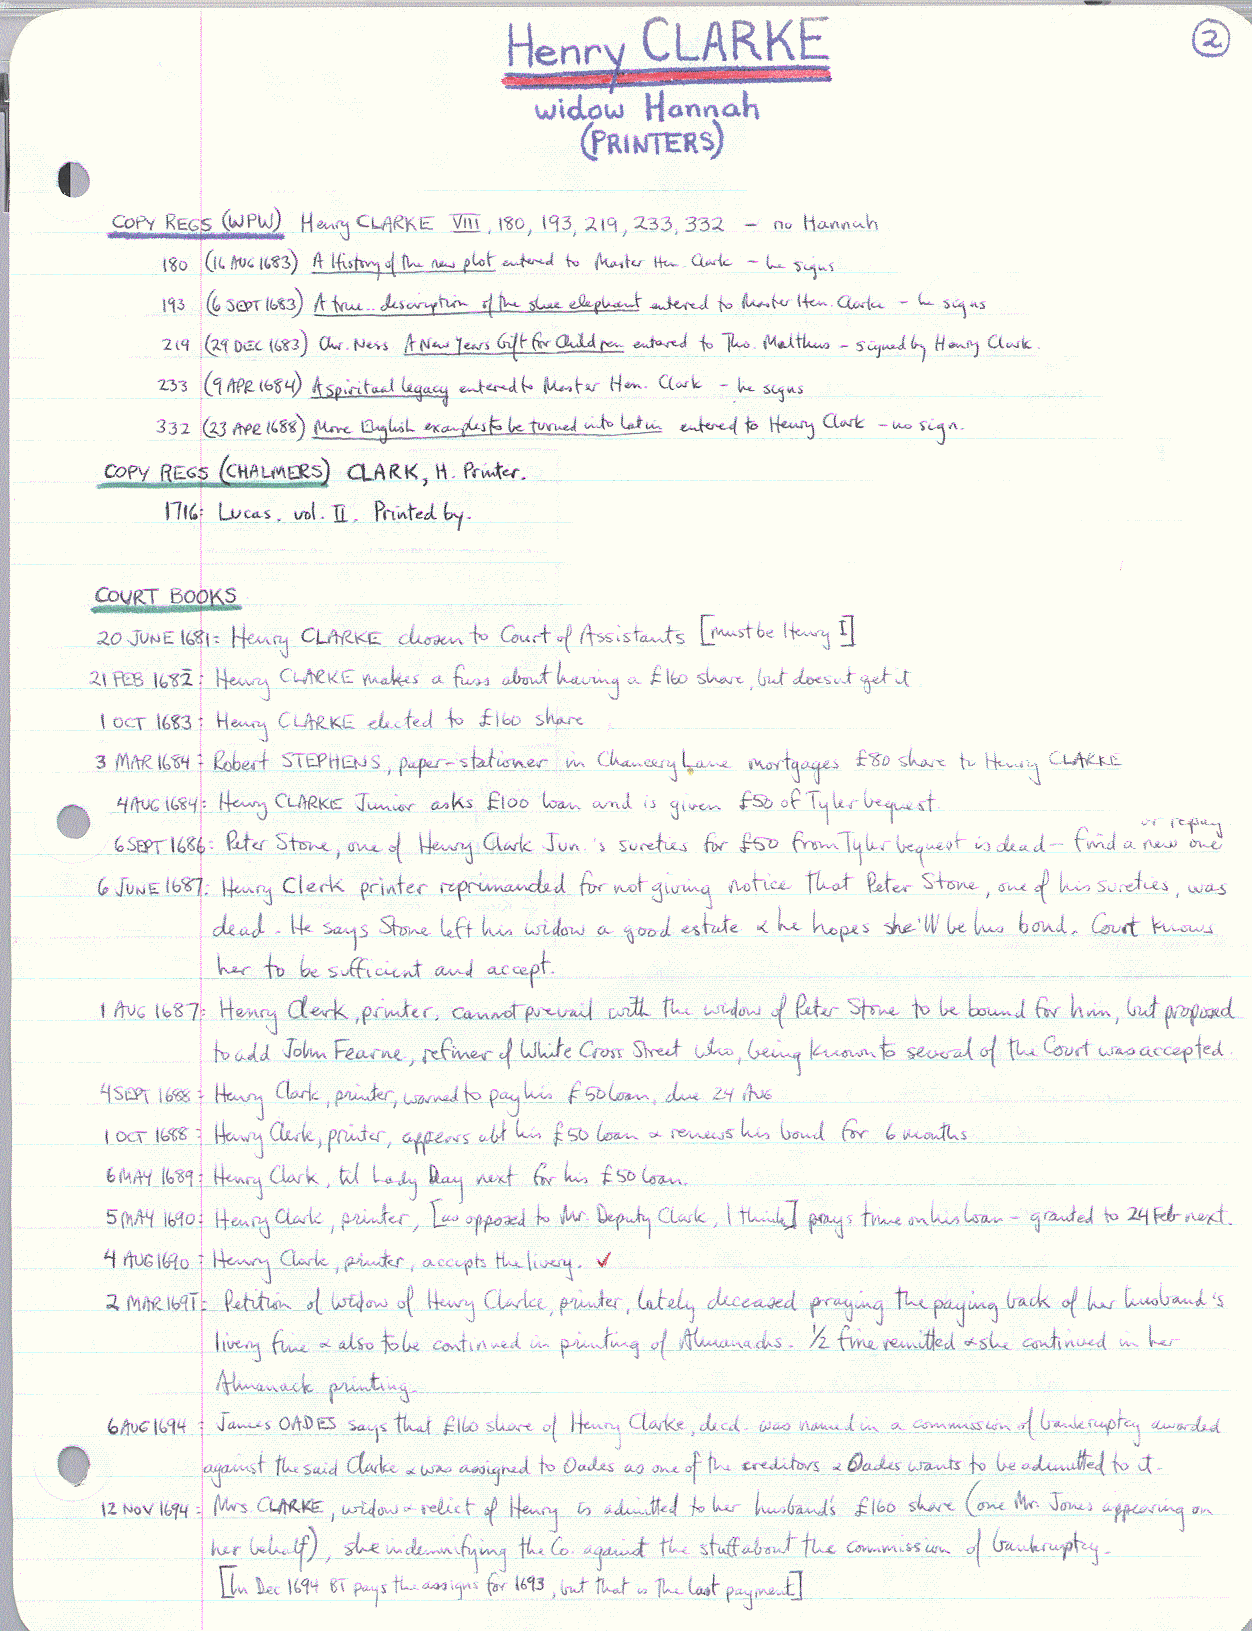 Henry CLARKE
②
widow Hannah
(PRINTERS)
COPY REGS (WPW) Henry CLARKE VIII, 180, 193, 219, 233, 332 - no Hannah
180 (16 AUG 1683) A History of the new plot entered to Master Hen. Clark - he signs
193 (6 SEPT 1683) A true.. description of the elephant entered to Master Hen. Clarke - he signs
219 (29 DEC 1683) Chr. Ness A New Years Gift for Children entered to Tho. Malthus - signed by Henry Clark.
233 (9 APR 1684) A spiritual legacy entered to Master Hen. Clark - he signs
332 (23 APR 1688) More English examples to be turned into Latin entered to Henry Clark - no sign.
COPY REGS (CHALMERS) CLARK, H. Printer.
1716: Lucas. vol. II. Printed by.
COURT BOOKS
20 JUNE 1681: Henry CLARKE chosen to Court of Assistants [must be Henry I]
21 FEB 1682: Henry CLARKE makes a fuss about having a £160 share, but doesnt get it
1 OCT 1683: Henry CLARKE elected to £160 share
3 MAR 1684: Robert STEPHENS, paper-stationer in Chancery Lane mortgages £80 share to Henry CLARKE
4 AUG 1684: Henry CLARKE Junior asks £100 loan and is given £50 of Tyler bequest.
or repay
6 SEPT 1686: Peter Stone, one of Henry Clark Jun.'s sureties for £50 from Tyler bequest is dead - find a new one
6 JUNE 1687: Henry Clerk printer reprimanded for not giving notice that Peter Stone, one of his sureties, was
dead. He says Stone left his widow a good estate & he hopes she'll be his bond. Court knows
her to be sufficient and accept.
1 AUG 1687: Henry Clerk, printer, cannot prevail with the widow of Peter Stone to be bound for him, but proposed
to add John Fearne, refiner of White Cross Street who, being known to several of the Court was accepted.
4 SEPT 1688: Henry Clark, printer, warned to pay his £50 loan, due 24 AUG
1 OCT 1688: Henry Clerk, printer, appears abt his £50 loan & renews his bond for 6 months
6 MAY 1689: Henry Clark, til Lady Day next for his £50 loan.
5 MAY 1690: Henry Clark, printer, [as opposed to Mr. Deputy Clark, I think] prays time on his loan - granted to 24 Feb next.
4 AUG 1690: Henry Clark, printer, accepts the livery. ✓
2 MAR 1691: Petition of widow of Henry Clarke, printer, lately deceased praying the paying back of her husband's
livery fine & also to be continued in printing of Almanacks. 1/2 fine remitted & she continued in her
Almanack printing.
6 AUG 1694: James OADES says that £160 share of Henry Clarke, decd. was named in a commission of bankruptcy awarded
against the said Clarke & was assigned to Oades as one of the creditors & Oades wants to be admitted to it.
12 NOV 1694: Mrs. CLARKE, widow & relict of Henry is admitted to her husband's £160 share (one Mr. Jones appearing on
her behalf), she indemnifying the Co. against the stuff about the commission of bankruptcy.
[In Dec 1694 BT pays the assigns for 1693, but that is the last payment]